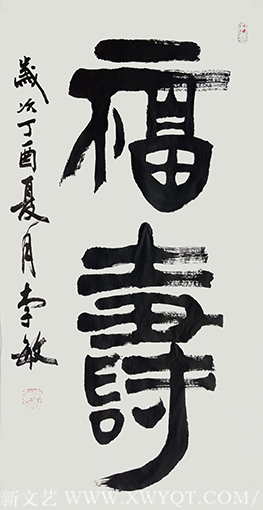 福壽
歲次丁酉夏月李敏
新文艺 WWW.XWYQT.COM